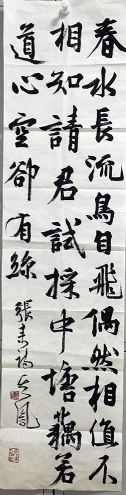 春水長流鳥自飛偶然相值不
相知請君試採中塘藕若
道心空卻有絲